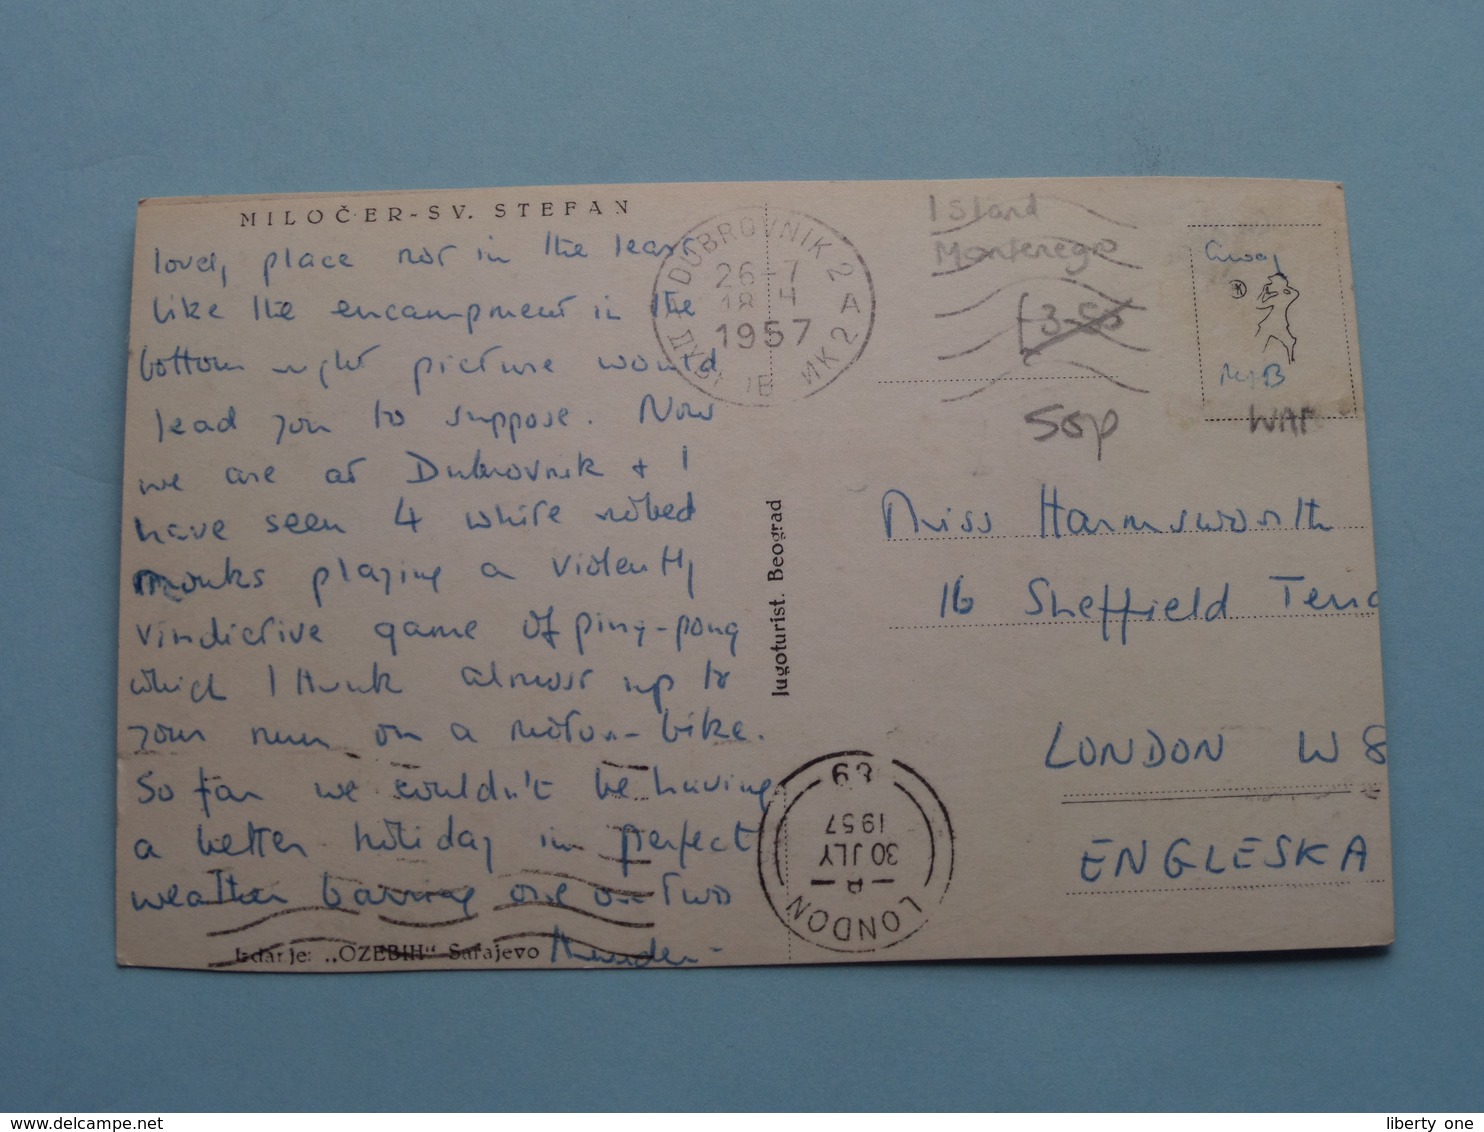 MILOČER-SV. STEFAN
lovely place not in the least
like the encampment in the
bottom right picture would
lead you to suppose. Now
we are at Dubrovnik + I
have seen 4 white robed
monks playing a violently
vindictive game of ping-pong
which I think almost up to
your run on a motor-bike.
So far we couldn't be having
a better holiday in perfect
weather barring one or two
Izdanje: „OZEBIH" Sarajevo
Jugoturist. Beograd
DUBROVNIK 2
26-7
18 H
1957
A
Island
Montenegro
£3-50
50p
WAP
Miss Harmsworth
16 Sheffield Terrac
LONDON W8
ENGLESKA
LONDON
A
30 JLY
1957
liberty one
delcampe.net